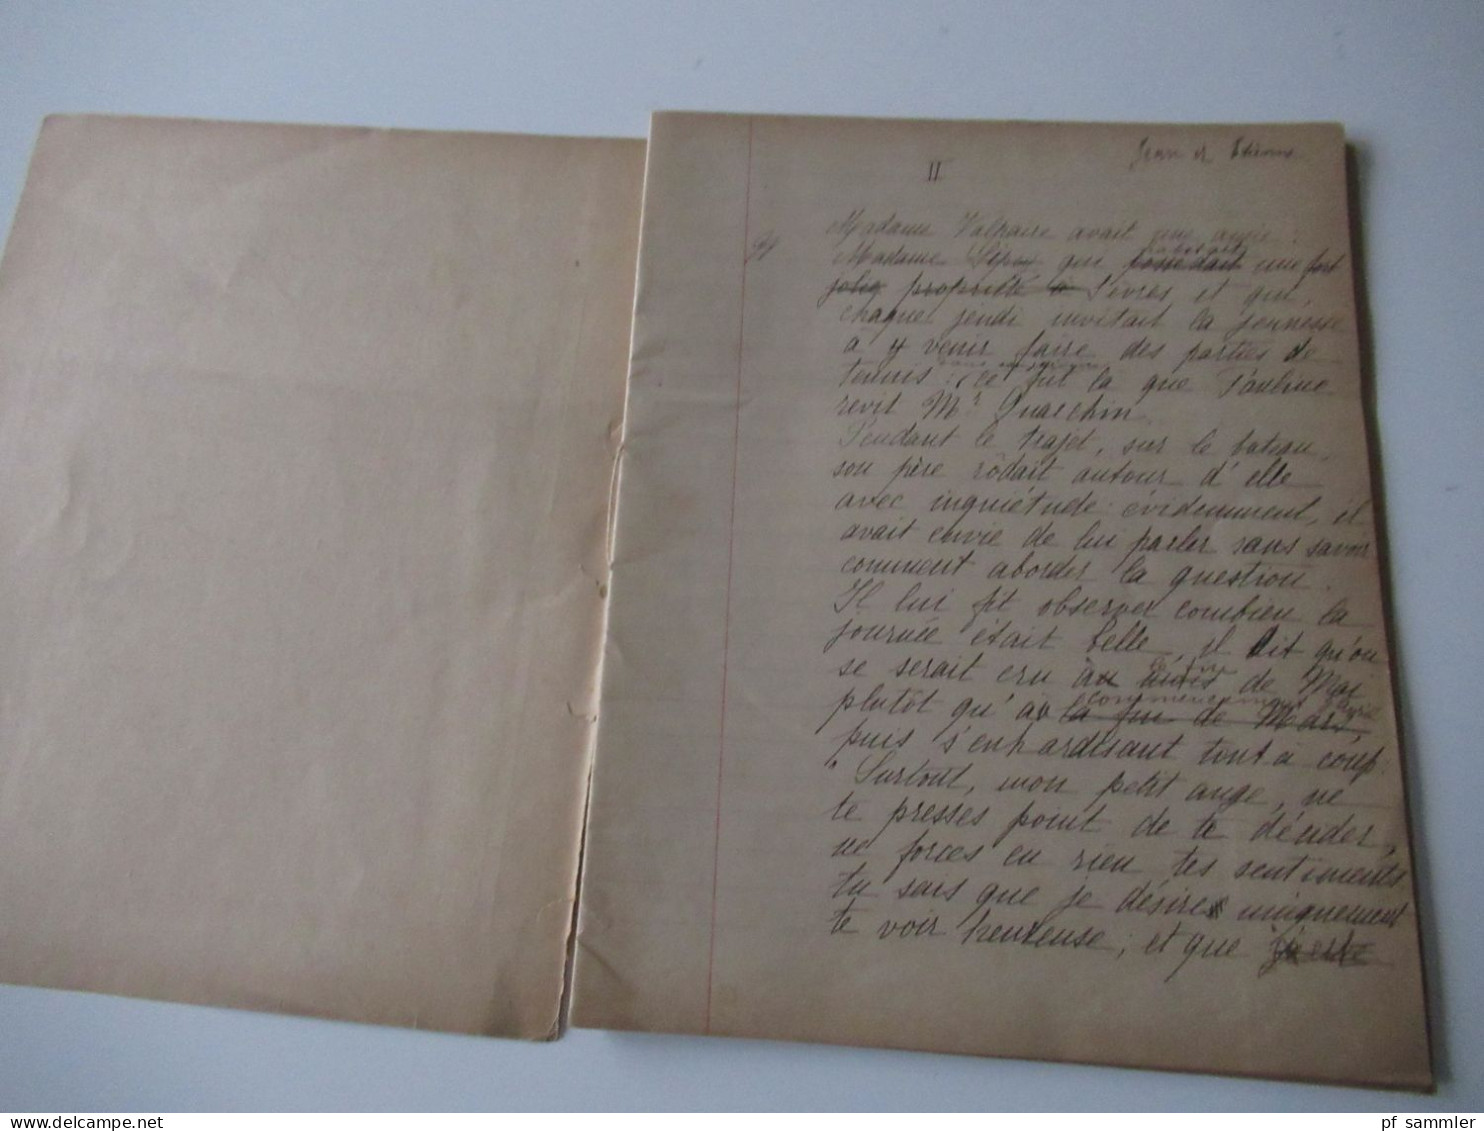 Jean et Etienne
II
Madame Valhaire avait une amie :
habitait
Madame qui possédait une fort
jolie propriété à Sèvres et qui,
chaque jeudi invitait la jeunesse
à y venir faire des parties de
tennis : ce fut là que Pauline
revit Mr
Pendant le trajet, sur le bateau,
son père rôdait autour d'elle
avec inquiétude : évidemment, il
avait envie de lui parler sans savoir
comment aborder la question.
Il lui fit observer combien la
journée était belle, il dit qu'on
se serait cru au de Mai
commencement d'Avril
plutôt qu'à la fin de Mars,
puis s'enhardissant tout à coup :
"Surtout, mon petit ange, ne
te presses point de te décider,
ne forces en rien tes sentiments
tu sais que je désire uniquement
te voir heureuse ; et que
pf sammler